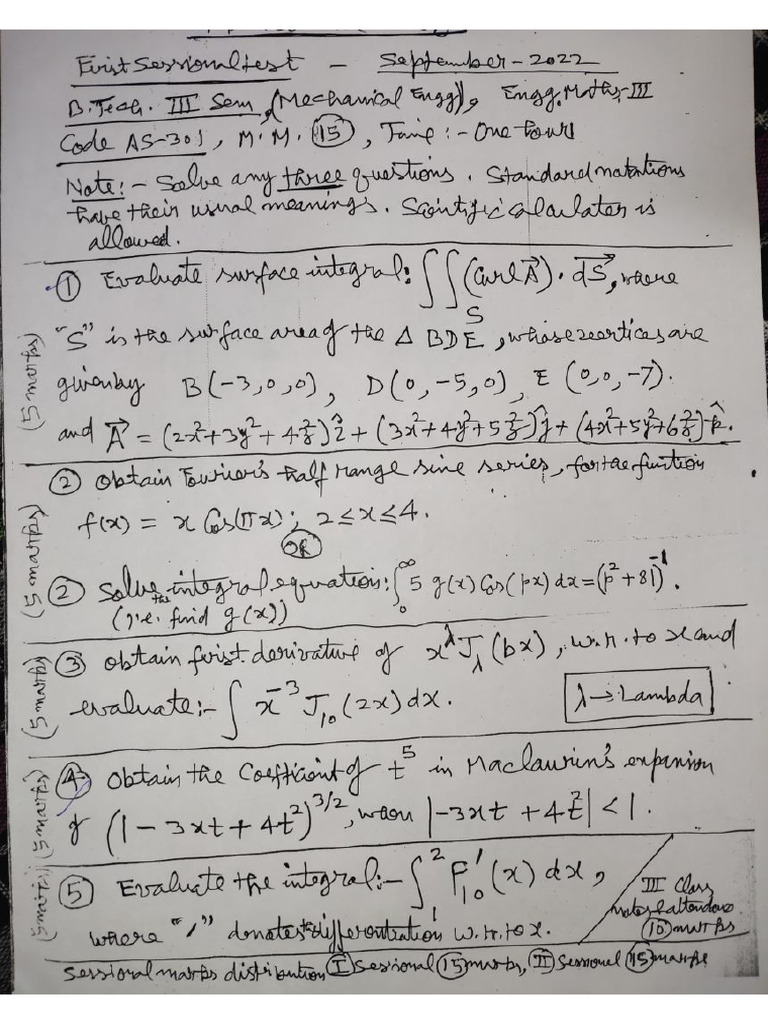 First Sessional test - September-2022
B.Tech. III Sem, (Mechanical Engg), Engg. Maths-III
Code AS-301, M.M. 15, Time:- One hour
Note:- Solve any three questions. Standard notations
have their usual meanings. Scintific calculator is
allowed.
① Evaluate surface integral: ∬_S (Curl A⃗)·dS⃗, where
"S" is the surface area of the Δ BDE, whose vertices are
given by B(-3,0,0), D(0,-5,0), E(0,0,-7).
and A⃗ = (2x²+3y²+4z²)î + (3x²+4y²+5z²)ĵ + (4x²+5y²+6z²)k̂.
(5 marks)
② Obtain Fourier's half range sine series, for the function
f(x) = x Cos(πx); 2≤x≤4.
OR
② Solve the integral equation: ∫₀^∞ 5 g(x) Cos(px) dx = (p²+81)⁻¹.
(i.e. find g(x))
(5 marks)
③ Obtain first derivative of x^λ J_λ(bx), w.r.to x and
evaluate:- ∫ x⁻³ J₁₀(2x) dx. λ→Lambda
(5 marks)
④ Obtain the Coefficient of t⁵ in Maclaurin's expansion
of (1-3xt+4t²)^{3/2}, when |-3xt+4t²|<1.
(5 marks)
⑤ Evaluate the integral:- ∫₁² P'₁₀(x) dx,
where "'" denotes differentiation w.r.to x.
(5 marks)
III Class
notes & attendance
10 marks
Sessional marks distribution I Sessional 15 marks, II Sessional 15 marks